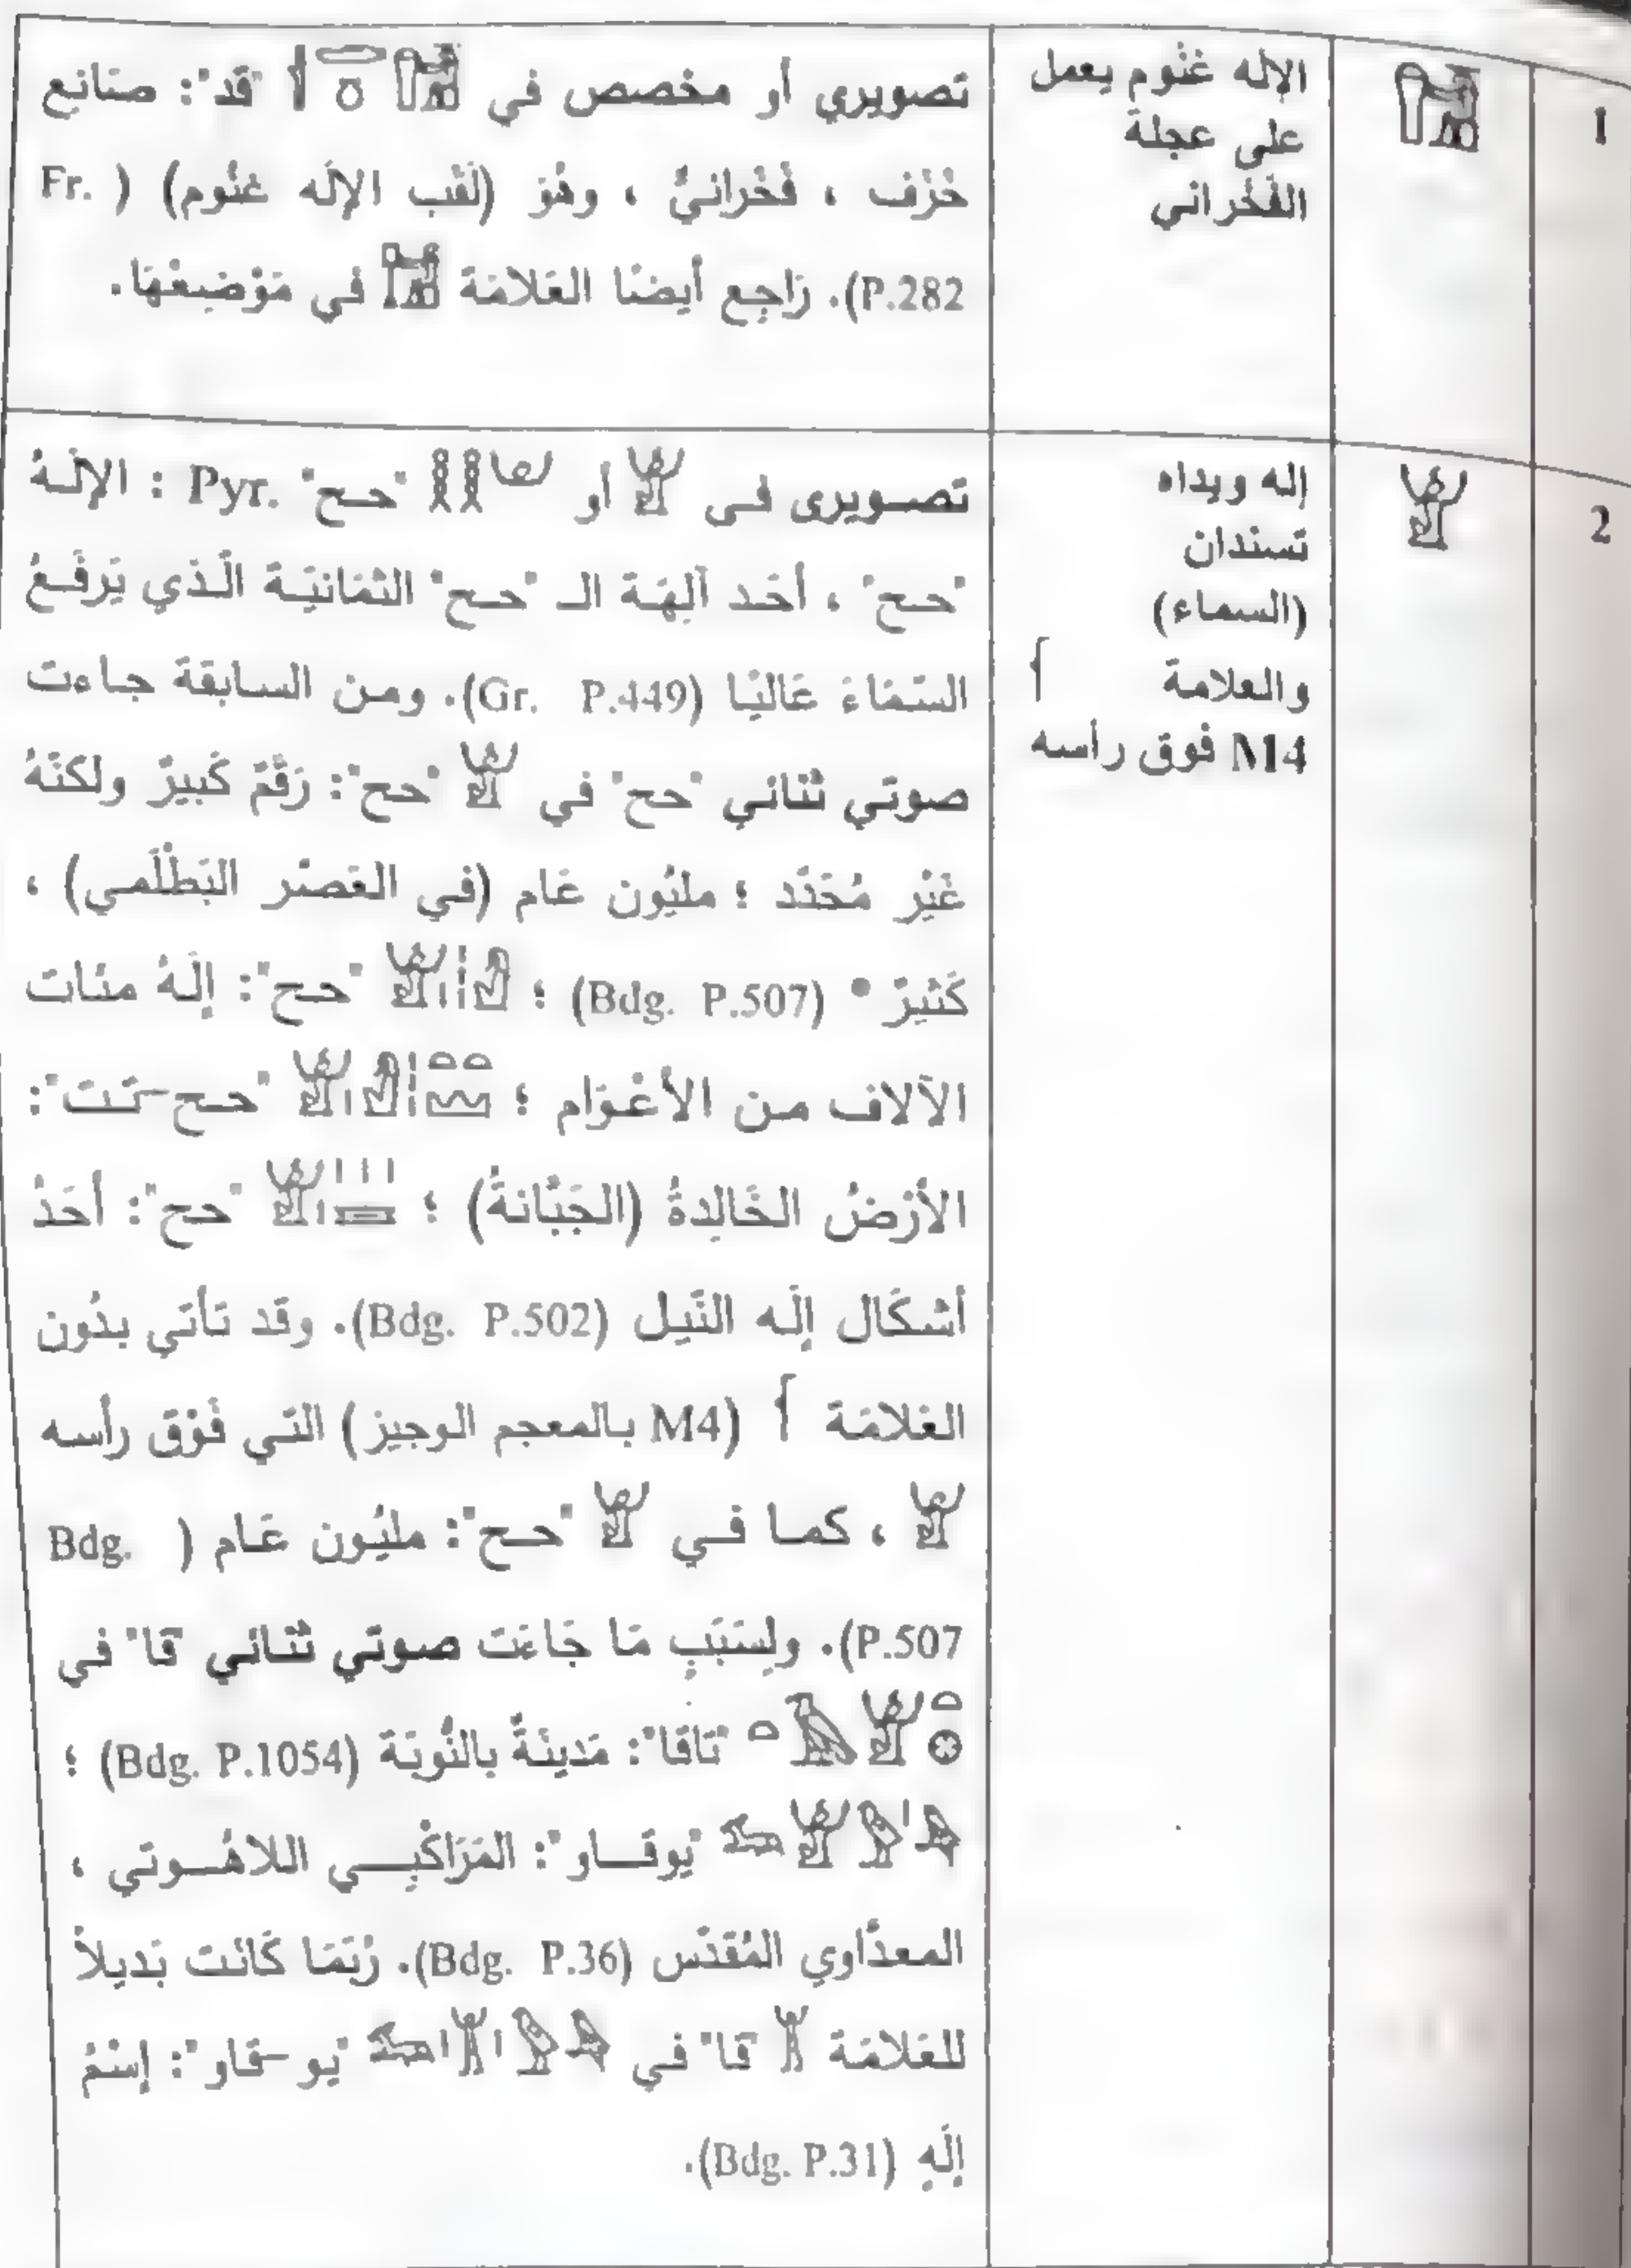 1
الإله غنوم يعمل
على عجلة
الفخراني
تصويري أو مخصص في "قد": صَانِع
خَزَف ، فَخْرانيٌّ ، وهُوَ (لَقَب الإلَه غنُوم) (Fr.
P.282). رَاجِع أيضًا العَلامَة في مَوْضِعْهَا.
2
إله ويداه
تسندان
(السماء)
والعلامة
M4 فوق رأسه
تصويرى فى أو "حح" Pyr. : الإلَهُ
"حح" ، أحَد آلِهَة الـ "حح" الثمَانيَة الَّذي يَرفَعُ
السَّمَاءَ عَاليًا (Gr. P.449). ومن السابقة جاءت
صوتي ثنائي "حح" في "حح": رَقَمٌ كَبيرٌ ولكنَّهُ
غَيْر مُحَدَّد ؛ مليُون عَام (في العَصْر البَطْلَمي) ،
كَثيرٌ • (Bdg. P.507) ؛ "حح": إلَهُ مئات
الآلاف من الأعْوَام ؛ "حح-تت":
الأرْضُ الخَالِدةُ (الجَبَّانةُ) ؛ "حح": أحَدُ
أشكَال إلَه النَّيل (Bdg. P.502). وقد تأتي بدُون
العَلامَة (M4 بالمعجم الوجيز) التي فَوْقَ رأسه
، كما في "حح": مليُون عَام (Bdg.
P.507). ولِسَبَبٍ مَا جَاءَت صوتي ثنائي "قا" في
"تاقا": مَدينَةٌ بالنُّوبَة (Bdg. P.1054) ؛
"يوقاو": المَرَاكْبِي اللاهُوتي ،
المعدَّاوي المُقدَّس (Bdg. P.36). رُبَمَا كَانت بَديلاً
للعَلامَة "قا" في "يو-قاو": إسْمُ
إلَهٍ (Bdg. P.31).